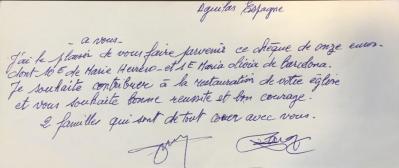 Aguilas Espagne
- a vous -
J'ai le plaisir de vous faire parvenir ce chèque de onze euros
dont 10€ de Marie Herrero - et 1€ Maria Olivia de Cardona.
Je souhaite contribuer à la restauration de votre église
et vous souhaite bonne reussite et bon courage.
2 familles qui sont de tout cœur avec vous.